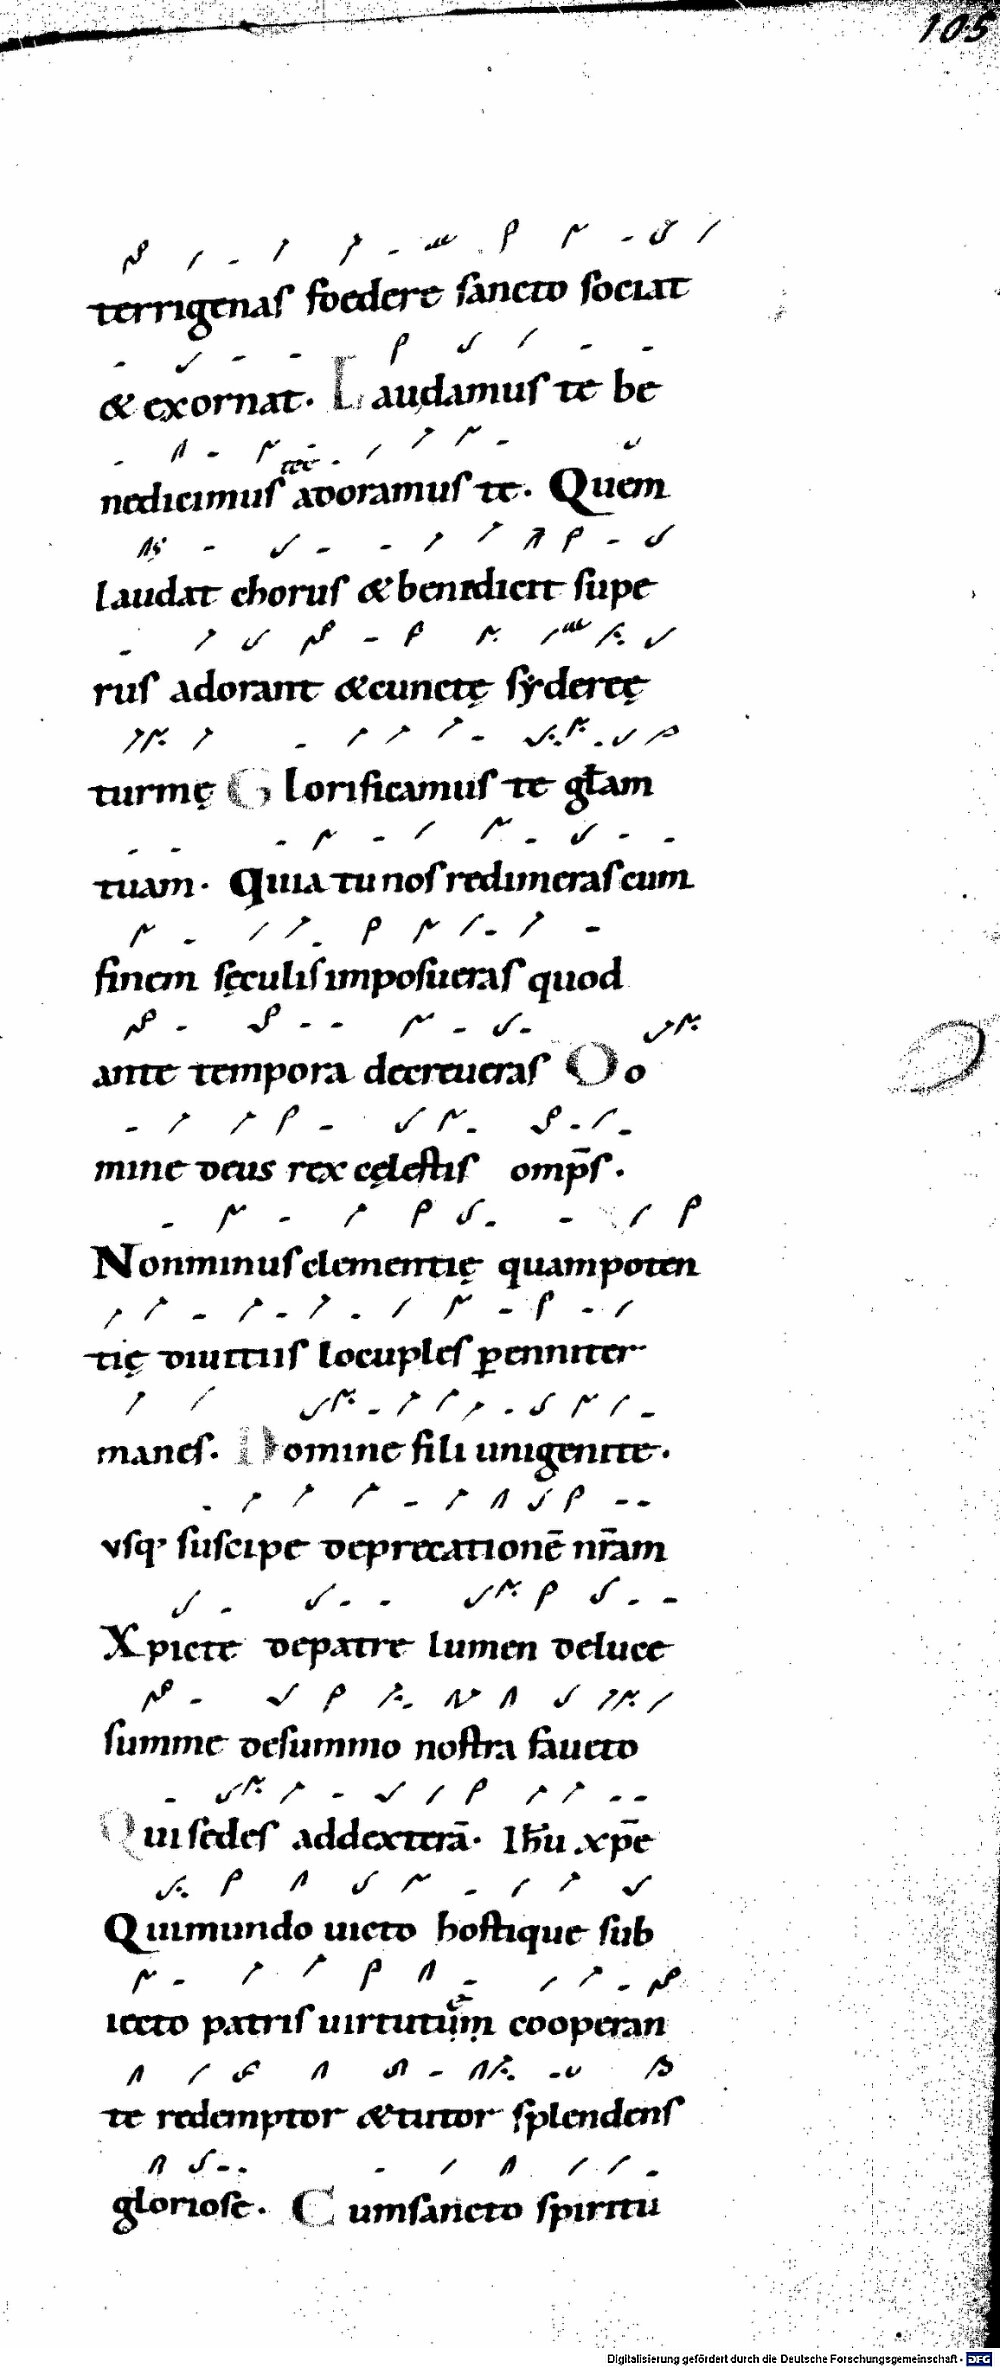 105
terrigenas foedere sancto sociat
& exornat. Laudamus te be
nedicimus te adoramus te. Quem
laudat chorus & benedicit supe
rus adorant & cunctę sẏdereę
turmę Glorificamus te gl̄am
tuam. Quia tu nos redimeras cum
finem sęculis imposueras quod
ante tempora decreueras Do
mine deus rex cęlestis omp̄s.
Non minus clementię quam poten
tię diuitiis locuples ꝑenniter
manes. Domine fili unigenite.
vsq' suscipe deprecationē nr̄am
Xpicte de patre lumen de luce
summe de summo nostra faueto
Qui sedes ad dexterā. Ihū xp̄e
Qui mundo uicto hostique sub
iecto patris uirtutum cooperan
te redemptor & tutor splendens
gloriose. Cum sancto spiritu
Digitalisierung gefördert durch die Deutsche Forschungsgemeinschaft - DFG